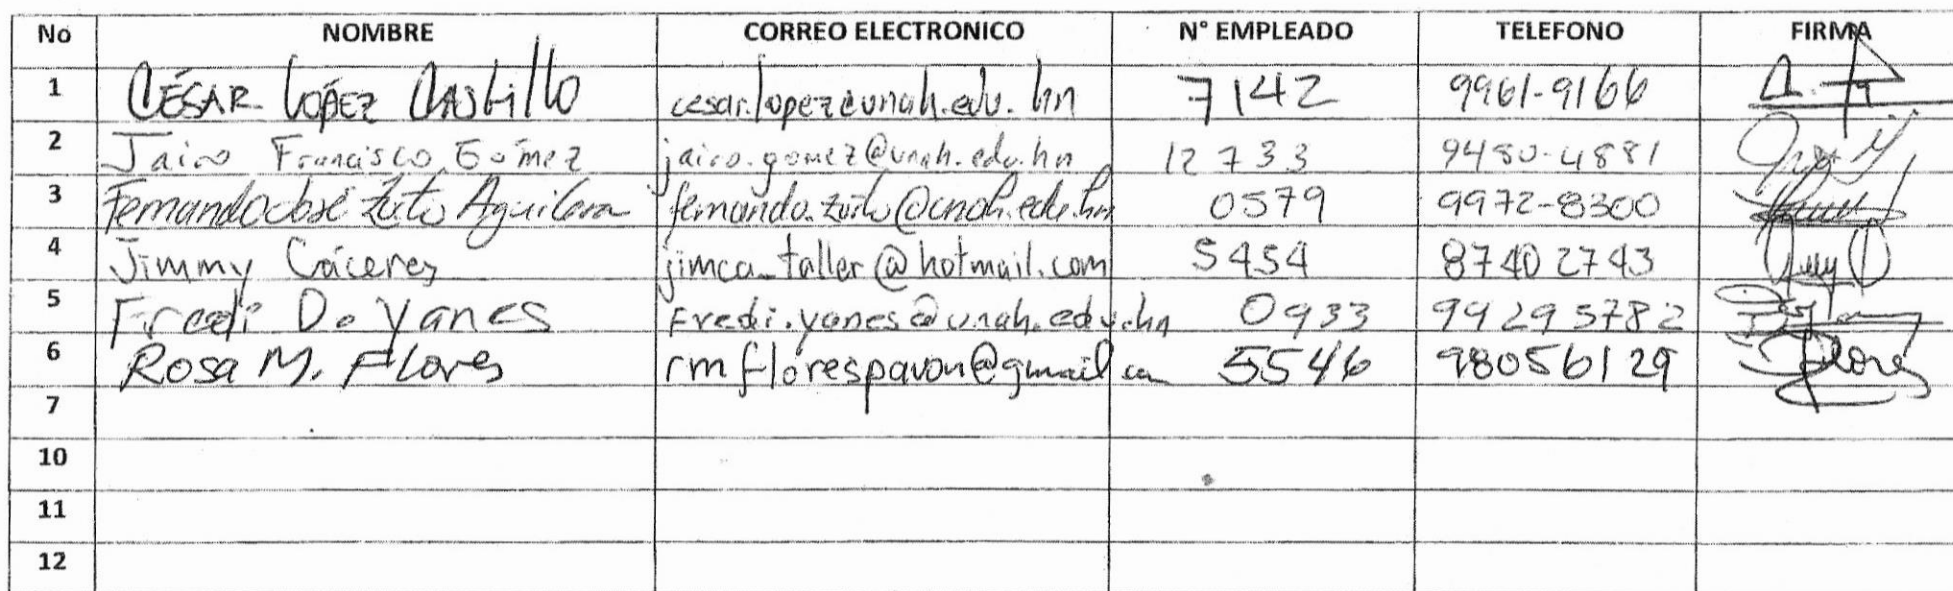 No NOMBRE CORREO ELECTRONICO N° EMPLEADO TELEFONO FIRMA
1 CÉSAR LÓPEZ CAStillo cesar.lopez@unah.edu.hn 7142 9961-9166
2 Jairo Francisco Gómez jairo.gomez@unah.edu.hn 12733 9480-4881
3 Fernando José Zorto Aguilera fernando.zorto@unah.edu.hn 0579 9972-8300
4 Jimmy Cáceres jimca_taller@hotmail.com 5454 87402743
5 Fredi D. Yanes Fredi.yanes@unah.edu.hn 0933 99295782
6 Rosa M. Flores rmflorespavon@gmail.com 5546 98056129 Flores
7
10
11
12